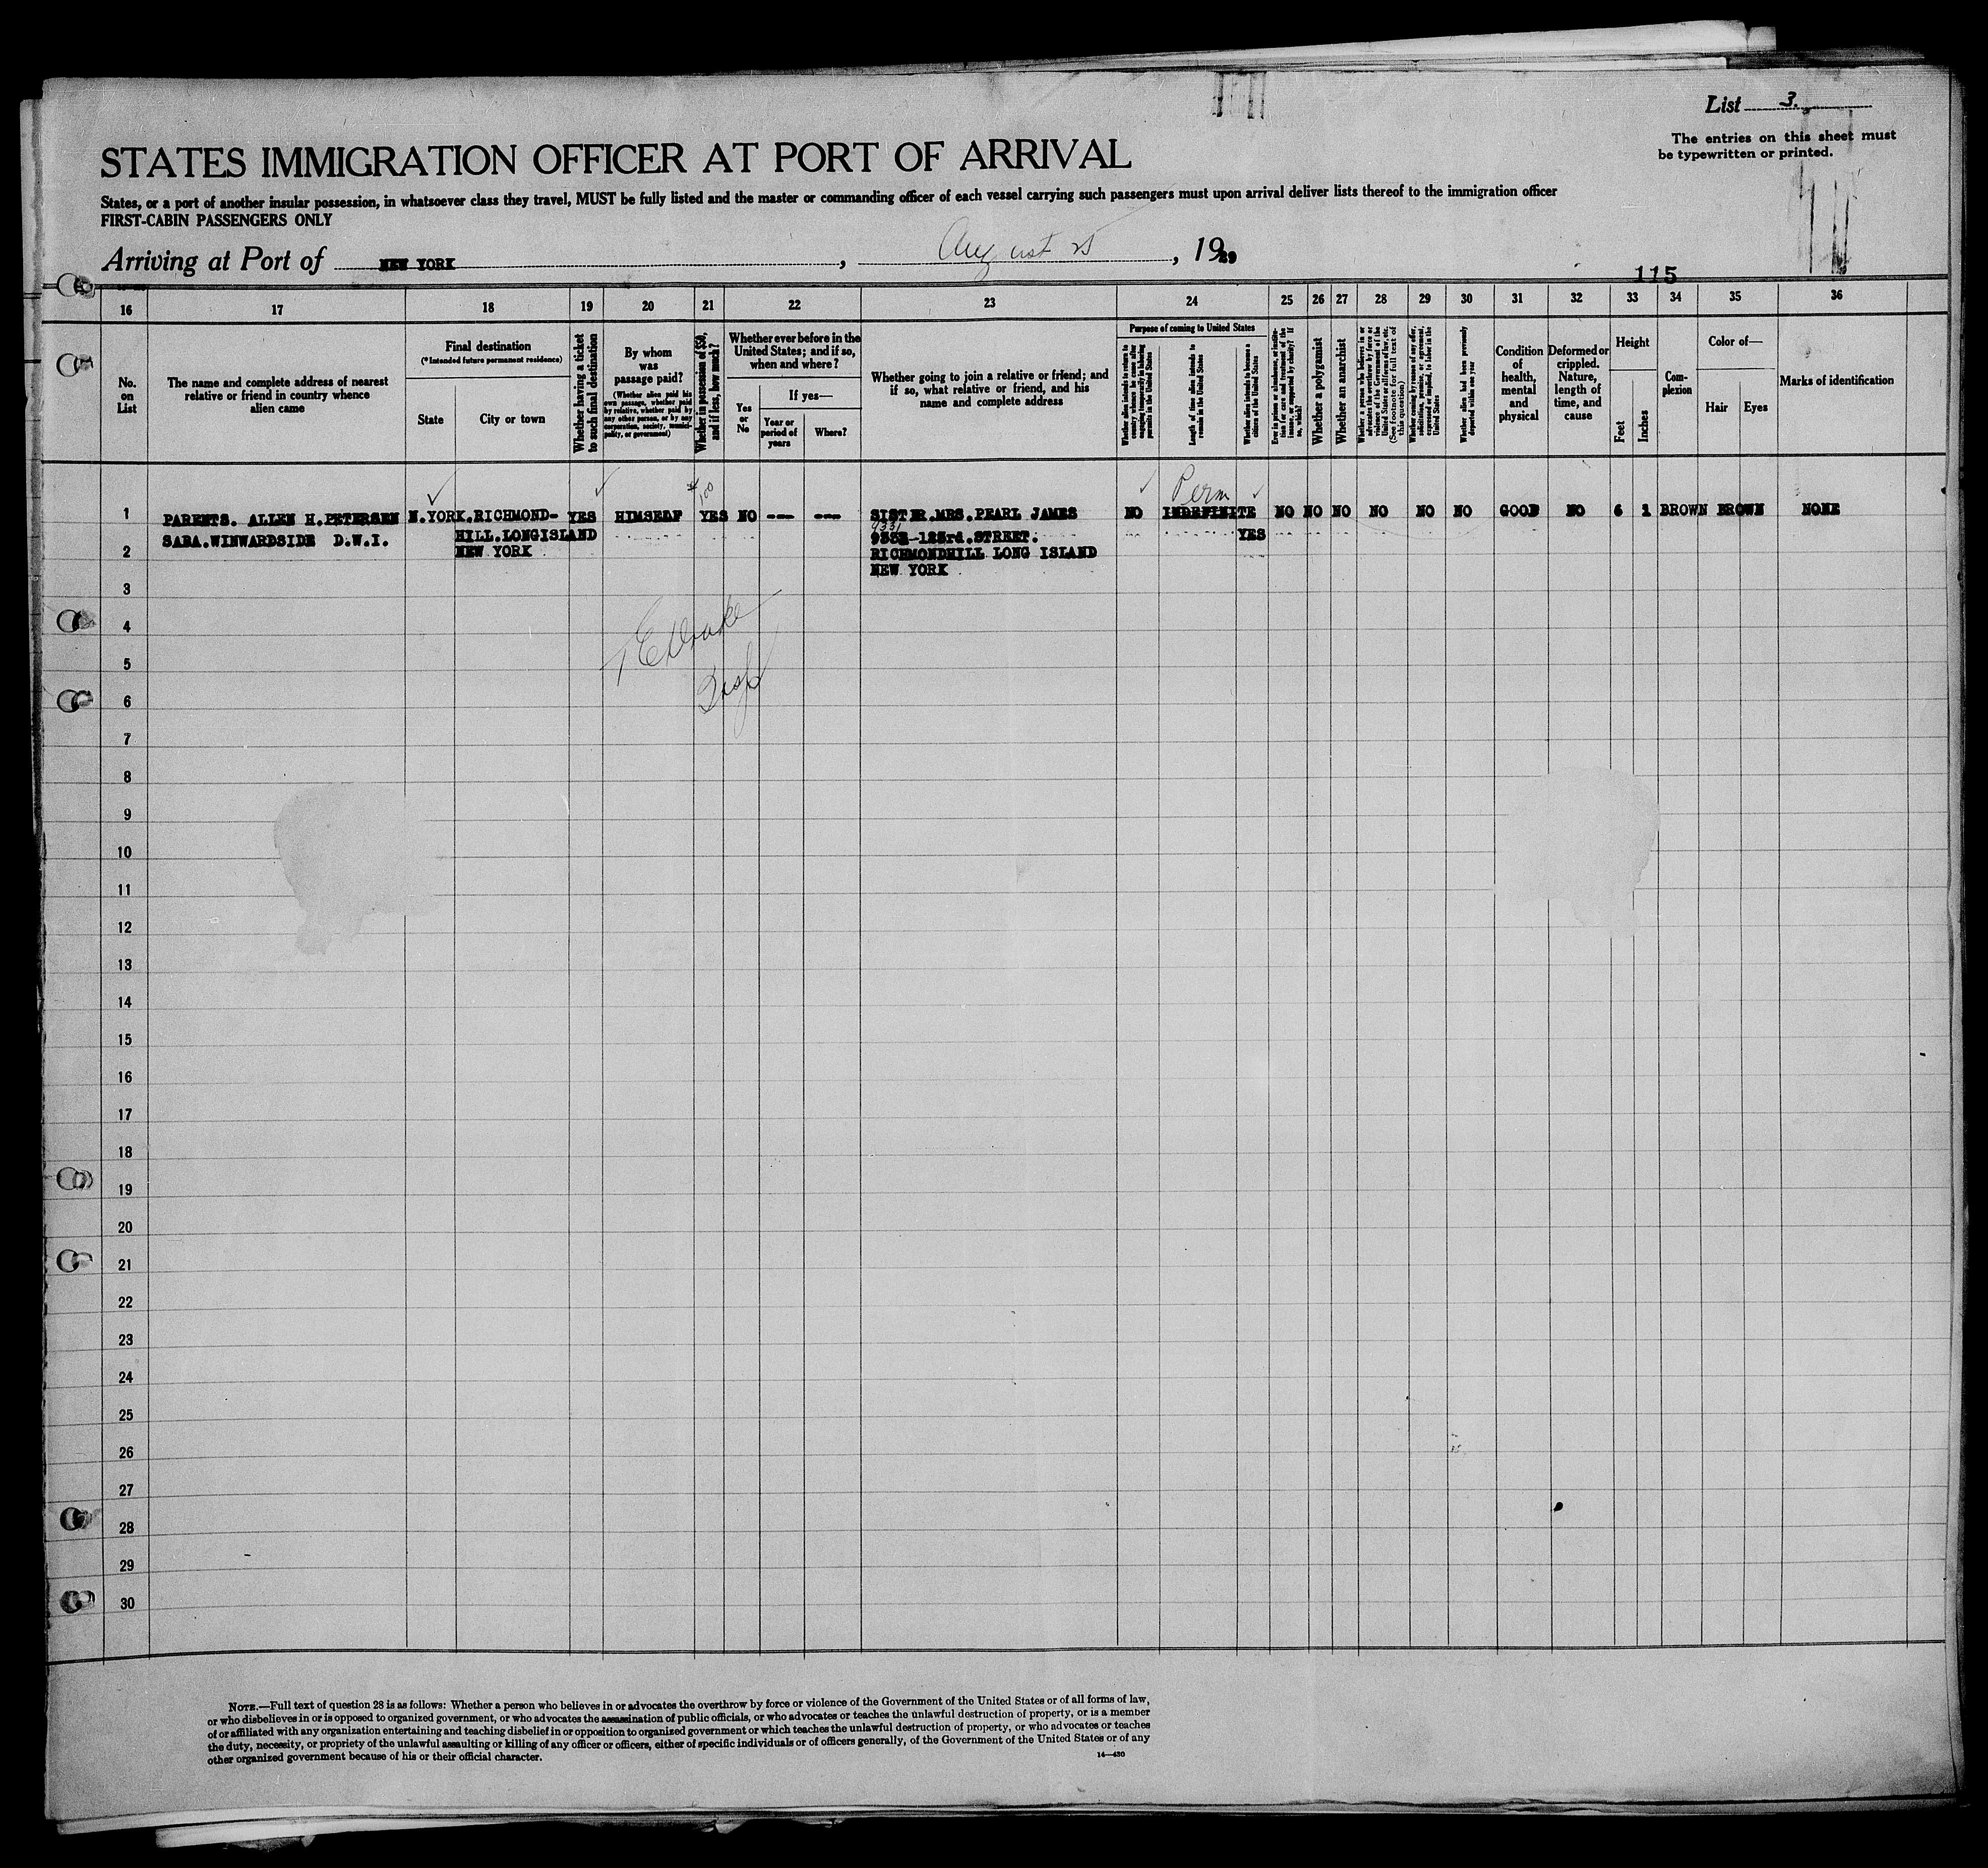 List 3.
The entries on this sheet must
be typewritten or printed.
STATES IMMIGRATION OFFICER AT PORT OF ARRIVAL
States, or a port of another insular possession, in whatsoever class they travel, MUST be fully listed and the master or commanding officer of each vessel carrying such passengers must upon arrival deliver lists thereof to the immigration officer
FIRST-CABIN PASSENGERS ONLY
Arriving at Port of NEW YORK, August 25, 1929
115
16 17 18 19 20 21 22 23 24 25 26 27 28 29 30 31 32 33 34 35 36
No.
on
List
The name and complete address of nearest
relative or friend in country whence
alien came
Final destination
(*Intended future permanent residence)
State
City or town
Whether having a ticket
to such final destination
By whom
was
passage paid?
(Whether alien paid his
own passage, whether paid
by relative, whether paid by
any other person, or by any
corporation, society, munici-
pality, or government)
Whether in possession of $50,
and if less, how much?
Whether ever before in the
United States; and if so,
when and where?
Yes
or
No
If yes—
Year or
period of
years
Where?
Whether going to join a relative or friend; and
if so, what relative or friend, and his
name and complete address
Purpose of coming to United States
Whether alien intends to return to
country whence he came after
engaging temporarily in laboring
pursuits in the United States
Length of time alien intends to
remain in the United States
Whether alien intends to become a
citizen of the United States
Ever in prison or almshouse, or institu-
tion for care and treatment of the
insane, or supported by charity? If
so, which?
Whether a polygamist
Whether an anarchist
Whether a person who believes in or
advocates the overthrow by force or
violence of the Government of the
United States or all forms of law, etc.
(See footnote for full text of
this question)
Whether coming by reason of any offer,
solicitation, promise, or agreement,
expressed or implied, to labor in the
United States
Whether alien had been previously
deported within one year
Condition
of
health,
mental
and
physical
Deformed or
crippled.
Nature,
length of
time, and
cause
Height
Feet
Inches
Com-
plexion
Color of—
Hair
Eyes
Marks of identification
$100
Perm
1 PARENTS. ALLEN H.PETERSEN N.YORK.RICHMOND- YES HIMSELF YES NO --- --- SISTER.MRS.PEARL JAMES NO INDEFINITE NO NO NO NO NO NO GOOD NO 6 1 BROWN BROWN NONE
9331
SABA.WINWARDSIDE D.W.I. HILL.LONGISLAND -123rd.STREET. YES
2 NEW YORK RICHMONDHILL LONG ISLAND
NEW YORK
3
4
5
6
7
8
9
10
11
12
13
14
15
16
17
18
19
20
21
22
23
24
25
26
27
28
29
30
NOTE.—Full text of question 28 is as follows: Whether a person who believes in or advocates the overthrow by force or violence of the Government of the United States or of all forms of law,
or who disbelieves in or is opposed to organized government, or who advocates the assassination of public officials, or who advocates or teaches the unlawful destruction of property, or is a member
of or affiliated with any organization entertaining and teaching disbelief in or opposition to organized government or which teaches the unlawful destruction of property, or who advocates or teaches
the duty, necessity, or propriety of the unlawful assaulting or killing of any officer or officers, either of specific individuals or of officers generally, of the Government of the United States or of any
other organized government because of his or their official character.
14—430